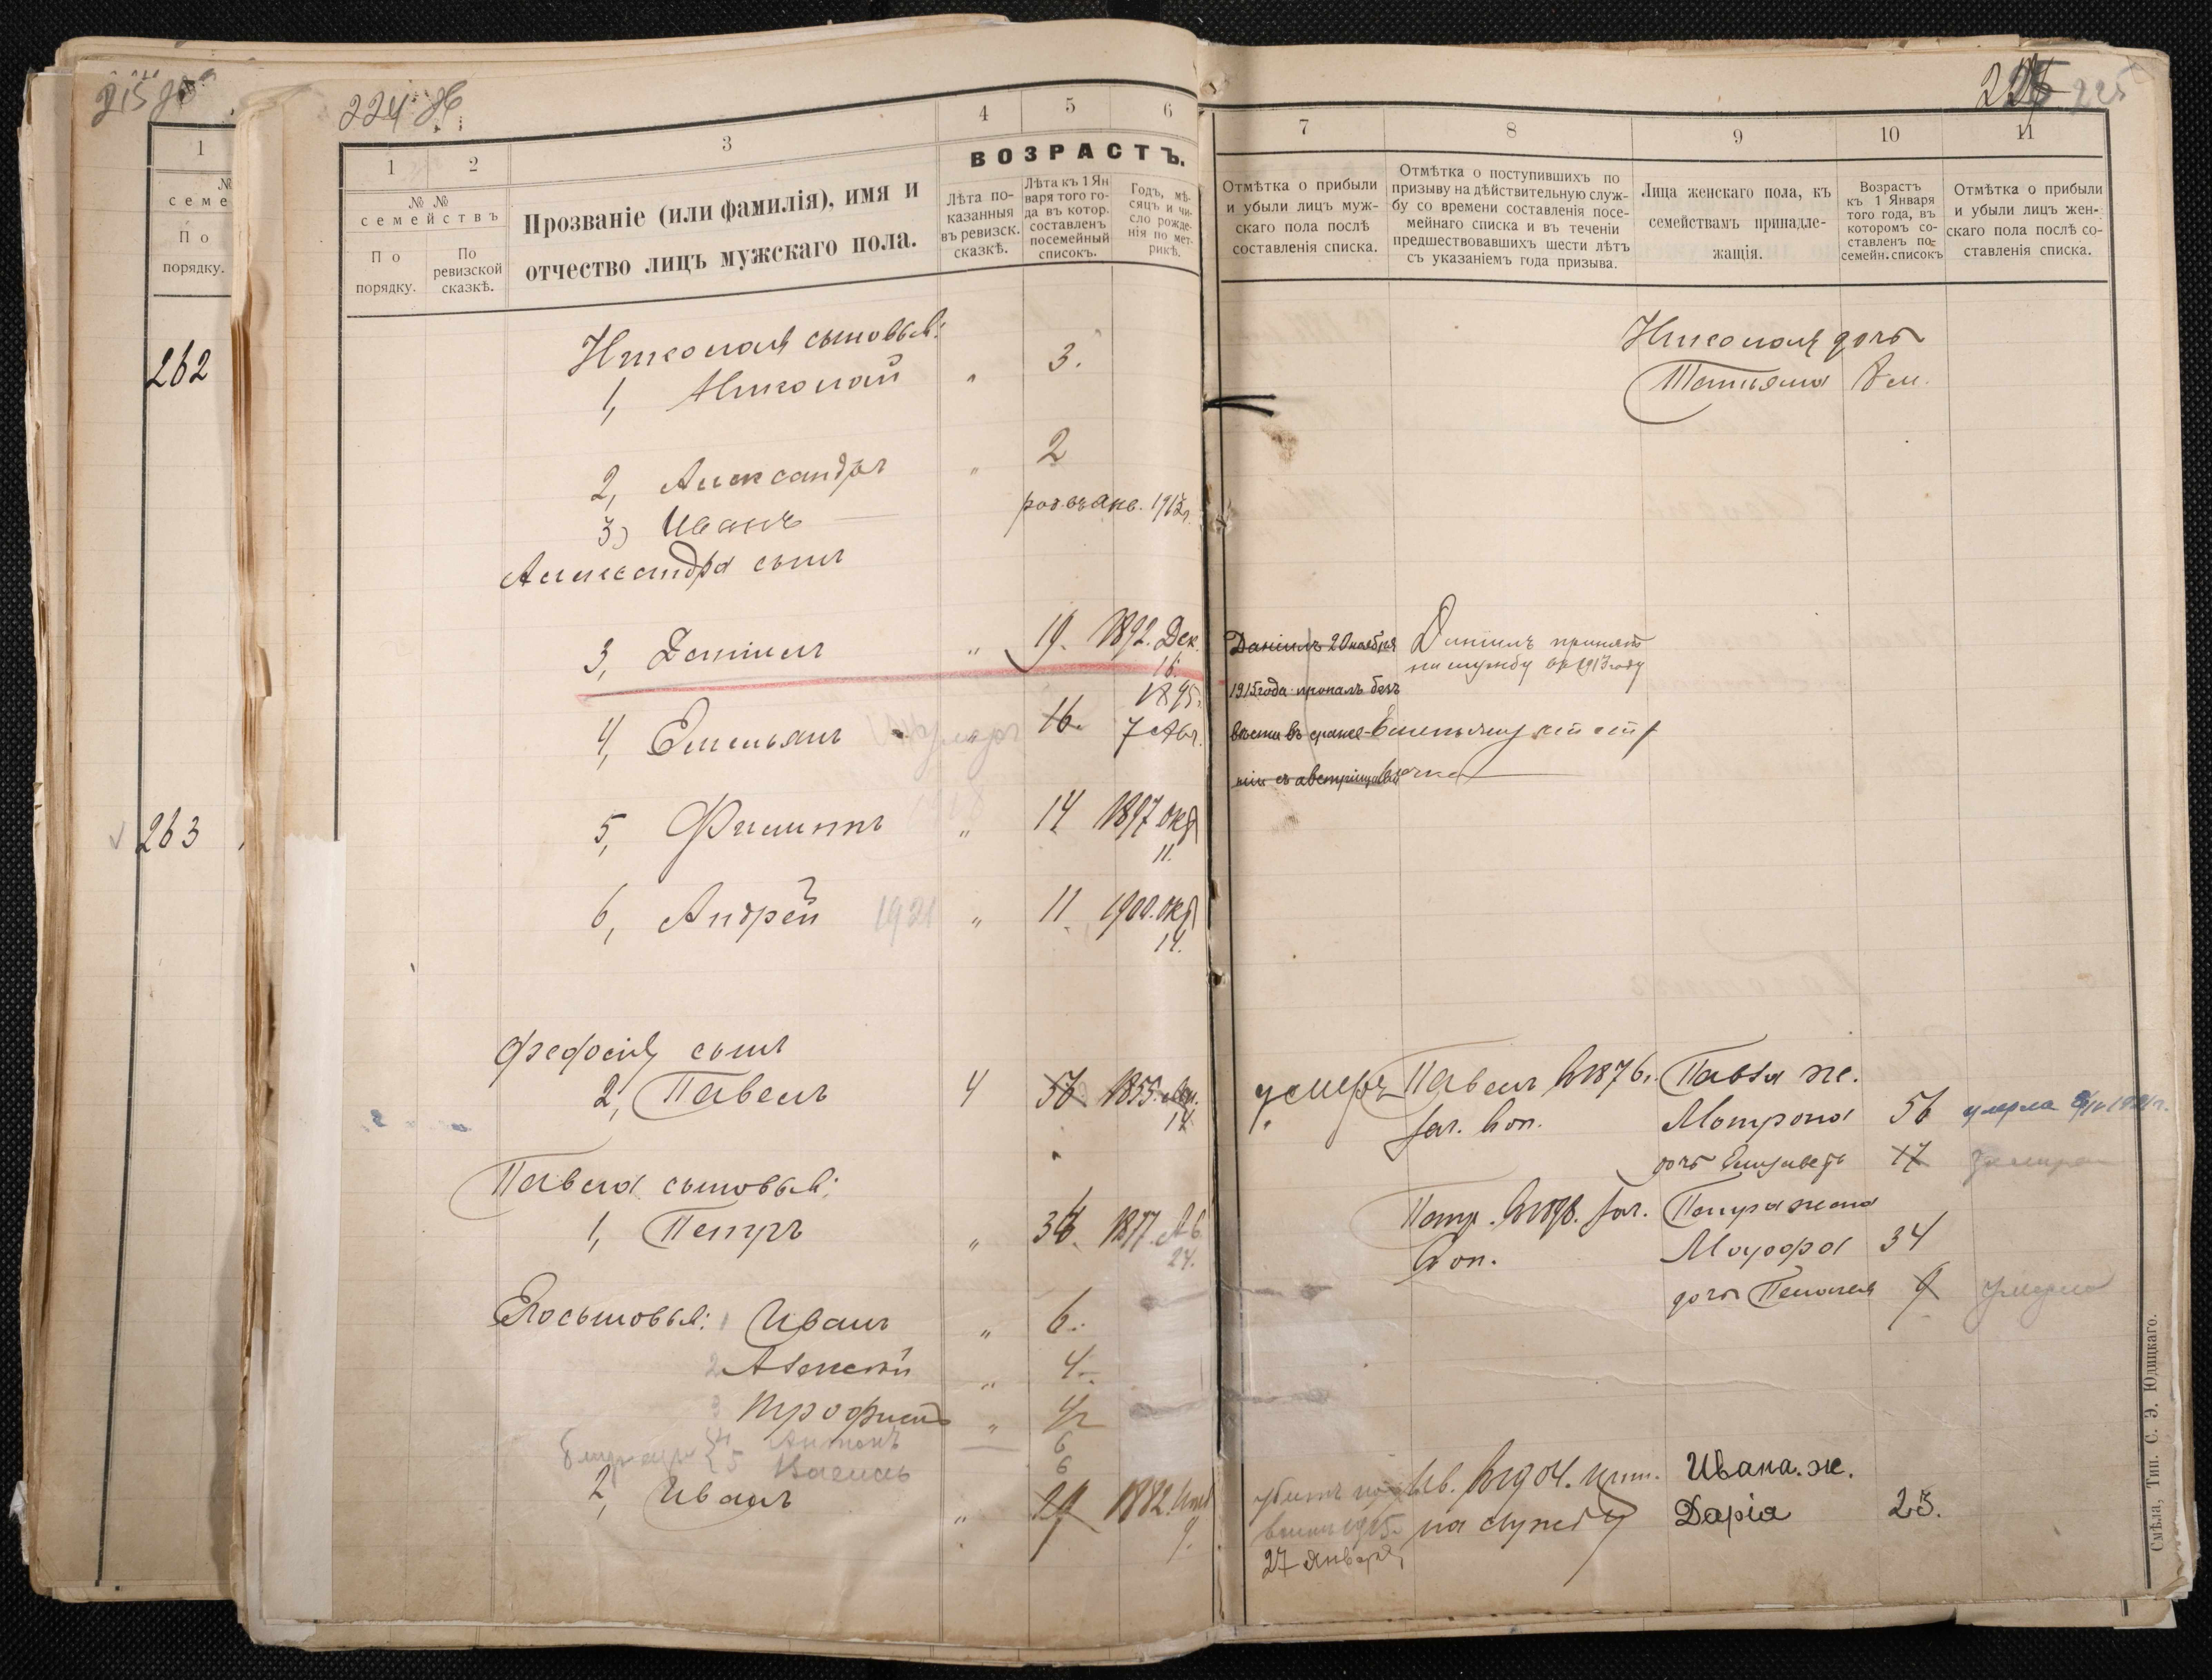 215
224
225
1
№
семе
По
порядку.
262
263
1
2
3
4
5
6
№ №
семействъ
По
порядку.
По
ревизской
сказкѣ.
Прозваніе (или фамилія), имя и
отчество лицъ мужскаго пола.
ВОЗРАСТЪ.
Лѣта по-
казанныя
въ ревизск.
сказкѣ.
Лѣта къ 1 Ян
варя того го-
да въ котор.
составленъ
посемейный
списокъ.
Годъ, мѣ-
сяцъ и чи-
сло рожде-
нія по мет-
рикѣ.
7
8
9
10
11
Отмѣтка о прибыли
и убыли лицъ муж-
скаго пола послѣ
составленія списка.
Отмѣтка о поступившихъ по
призыву на дѣйствительную служ-
бу со времени составленія посе-
мейнаго списка и въ теченіи
предшествовавшихъ шести лѣтъ
съ указаніемъ года призыва.
Лица женскаго пола, къ
семействамъ принадле-
жащія.
Возрастъ
къ 1 Января
того года, въ
которомъ со-
ставленъ по-
семейн. списокъ
Отмѣтка о прибыли
и убыли лицъ жен-
скаго пола послѣ со-
ставленія списка.
Николая сыновья:
1, Николай " 3.
Николая дочь
Татьяна
2, Александръ " 2
3) Иванъ 1913г.
Александра сынъ
3, Даніилъ " 19. 1892. Дек. 16.
Даніилъ 20 ноября
1915 года пропалъ безъ
вести въ
съ австрійцами
Даніилъ принятъ
на службу въ 1913 году
4, Емельянъ " 16. 1895. 7 Авг.
Емельяну
5, Филиппъ " 14 1897 окт 11.
6, Андрей 1921 " 11 1900. окт 14.
Феодосія сынъ
2, Павелъ 4 56 1855. 14
умеръ
Павелъ в 1876г.
зач. в оп.
Павла же.
Матрона 56 умерла
дочь Елизавета 17
Павла сыновья:
1, Петръ " 34 1877. Ав. 24.
Петр. зач.
в оп.
Петра жена
Мавра 34
дочь Пелагея 9 умерла
Его сыновья: 1 Иванъ " 6.
2 Алексѣй " 4.
3 Трофимъ " 1/2
4 Антонъ 6
5 Василь 6
2, Иванъ " 29 1882. 9.
убитъ
1915.
27 января
Ив. в 1904. прин.
на службу
Ивана. же.
Дарія 23.
Смѣла, Тип. С. Э. Юдицкаго.